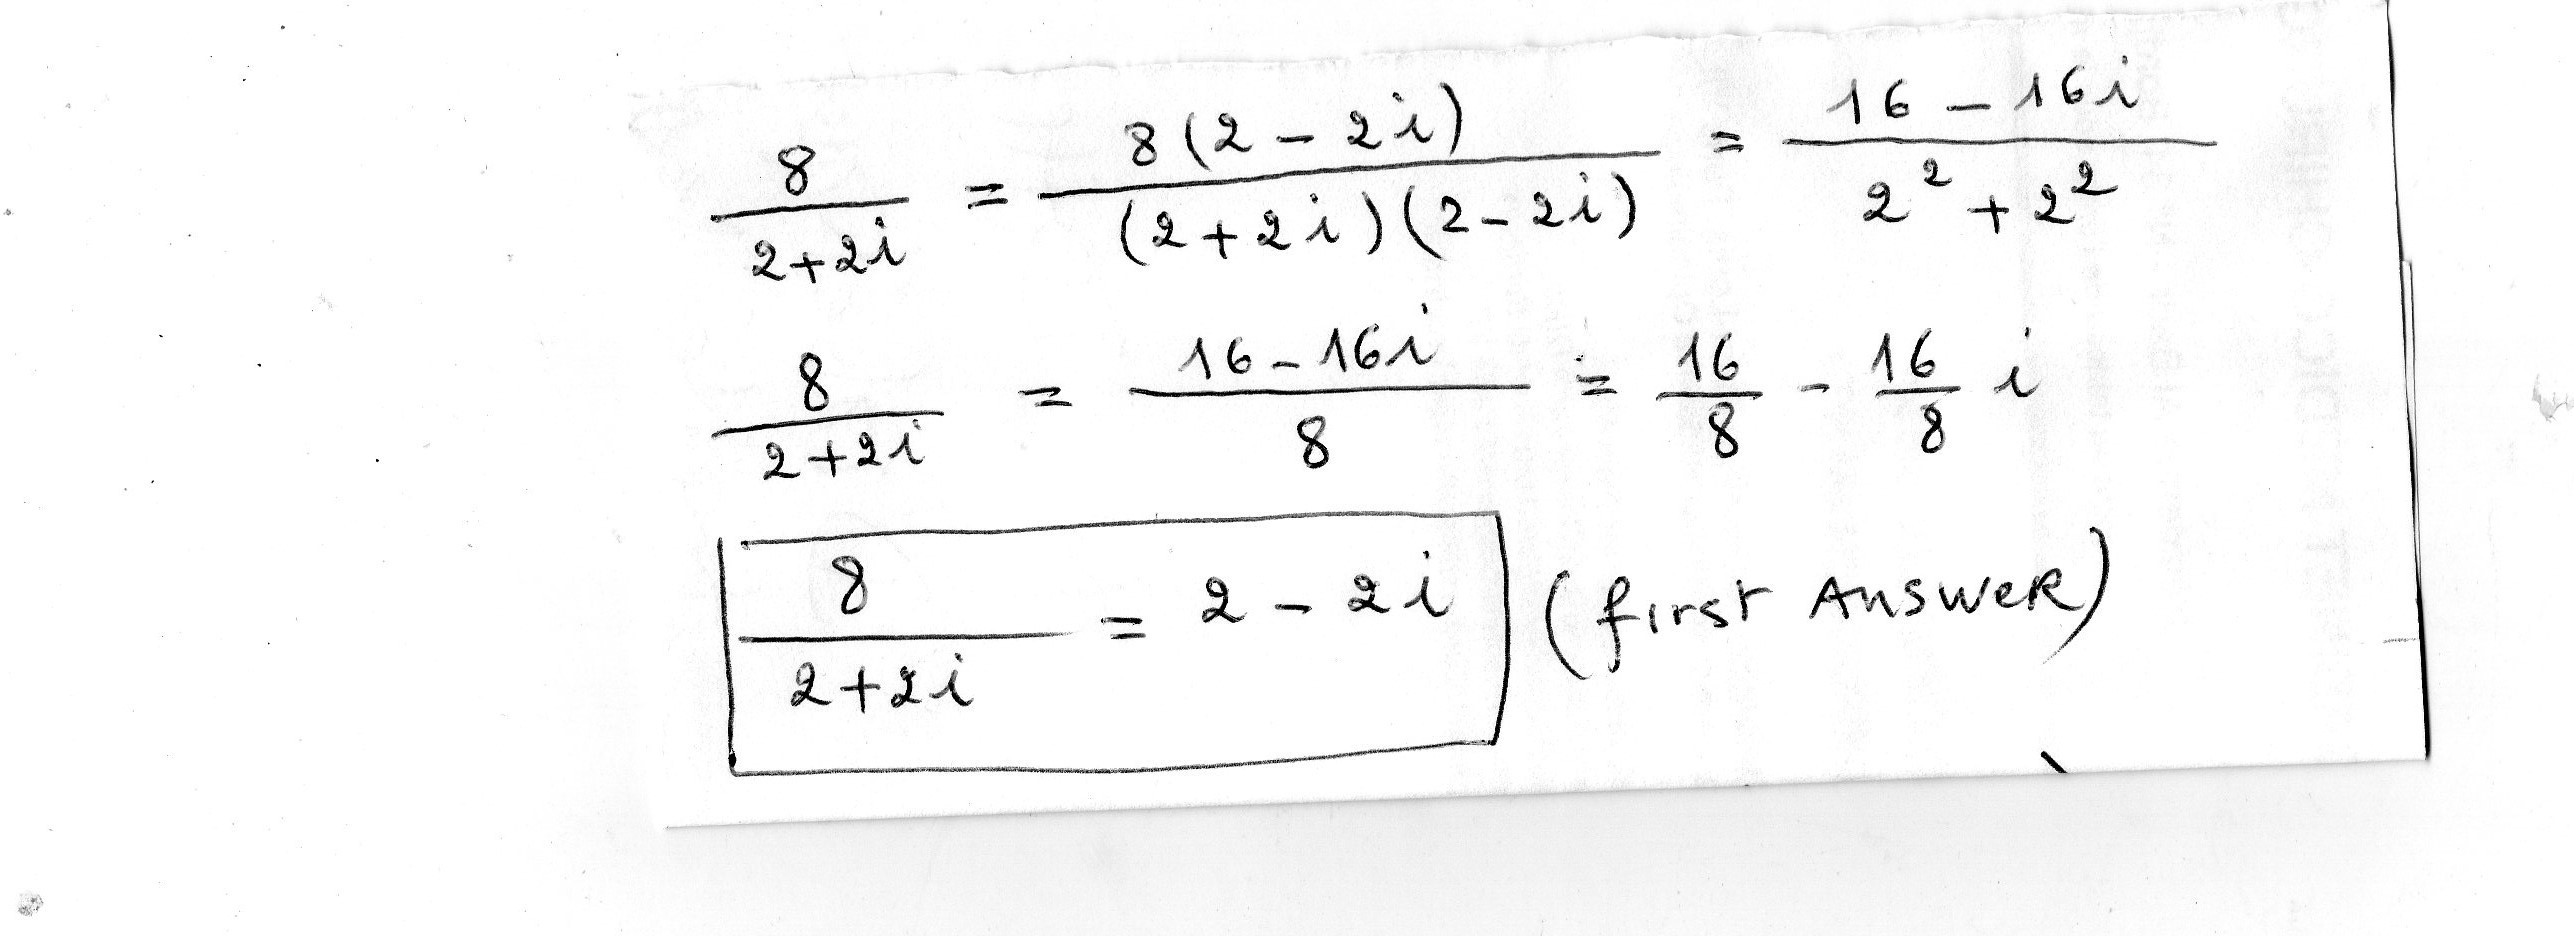 8/(2+2i) = 8(2-2i)/((2+2i)(2-2i)) = (16-16i)/(2²+2²)
8/(2+2i) = (16-16i)/8 = 16/8 - 16/8 i
8/(2+2i) = 2-2i (first Answer)